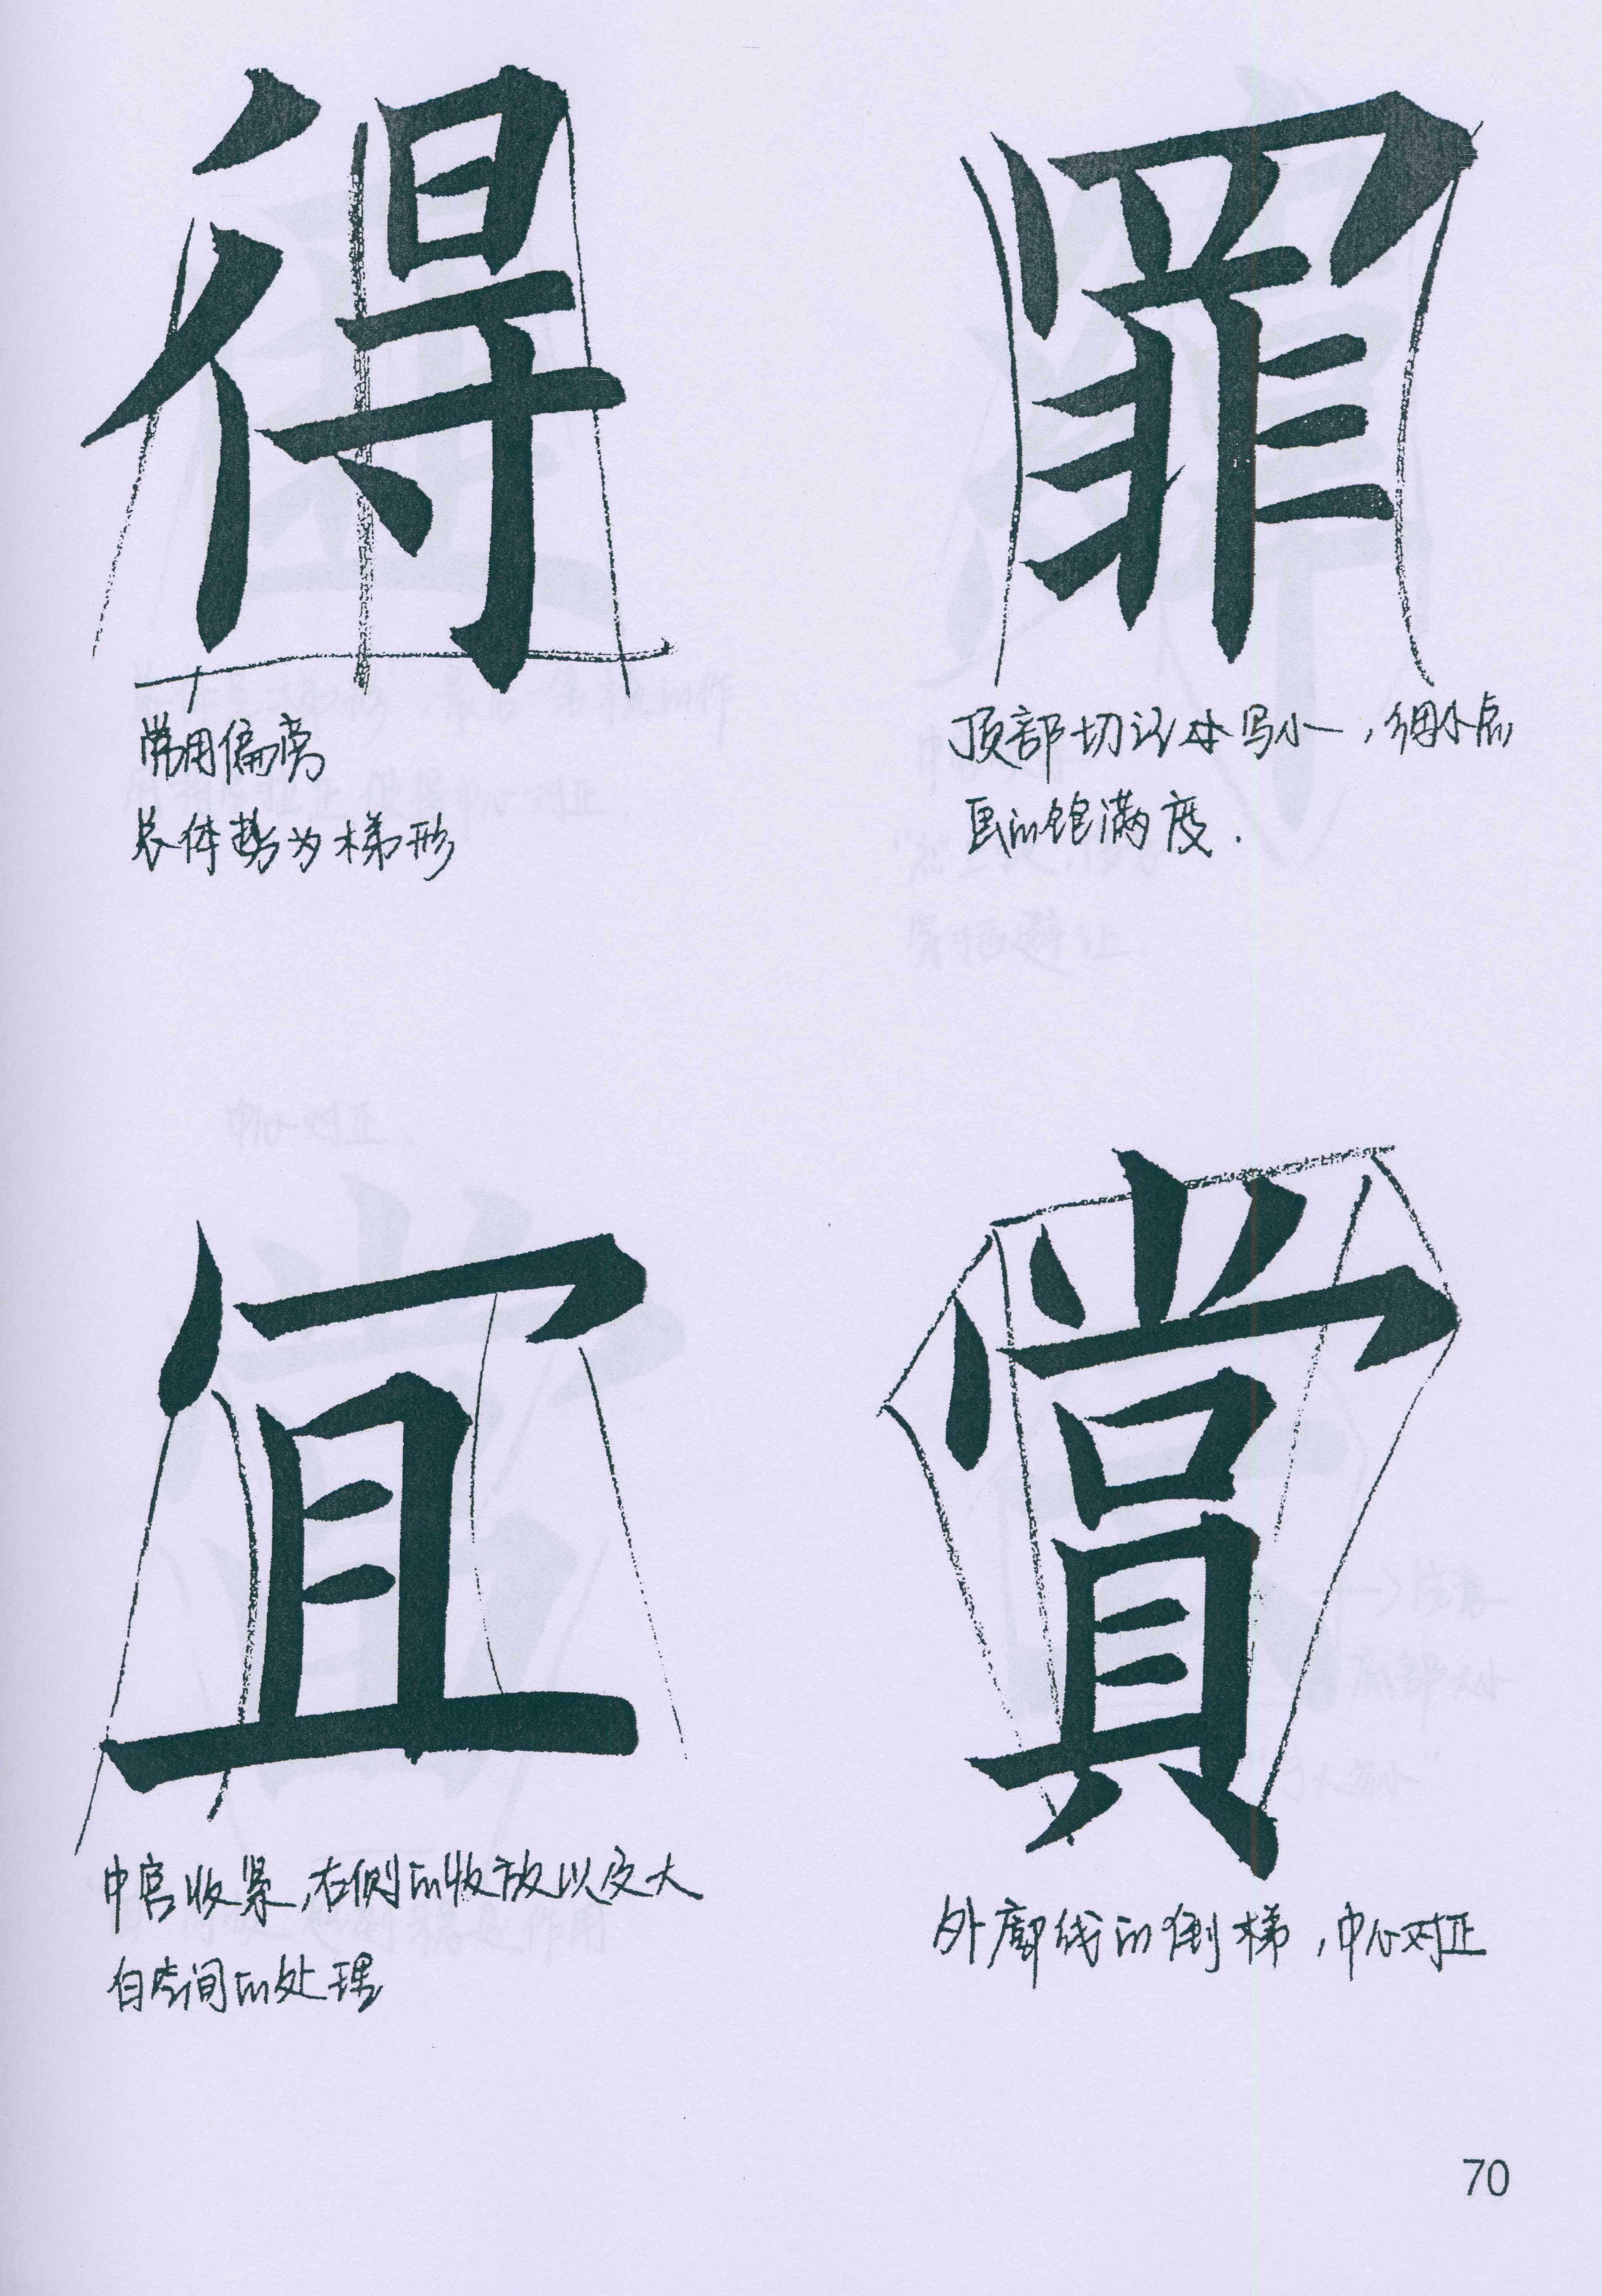 得
罪
常用偏旁
总体势为梯形
顶部切记不写小，细小点
画的饱满度.
宜
賞
中宫收紧，右侧的收放以及大
白空间的处理
外廓线的倒梯，中心对正
70